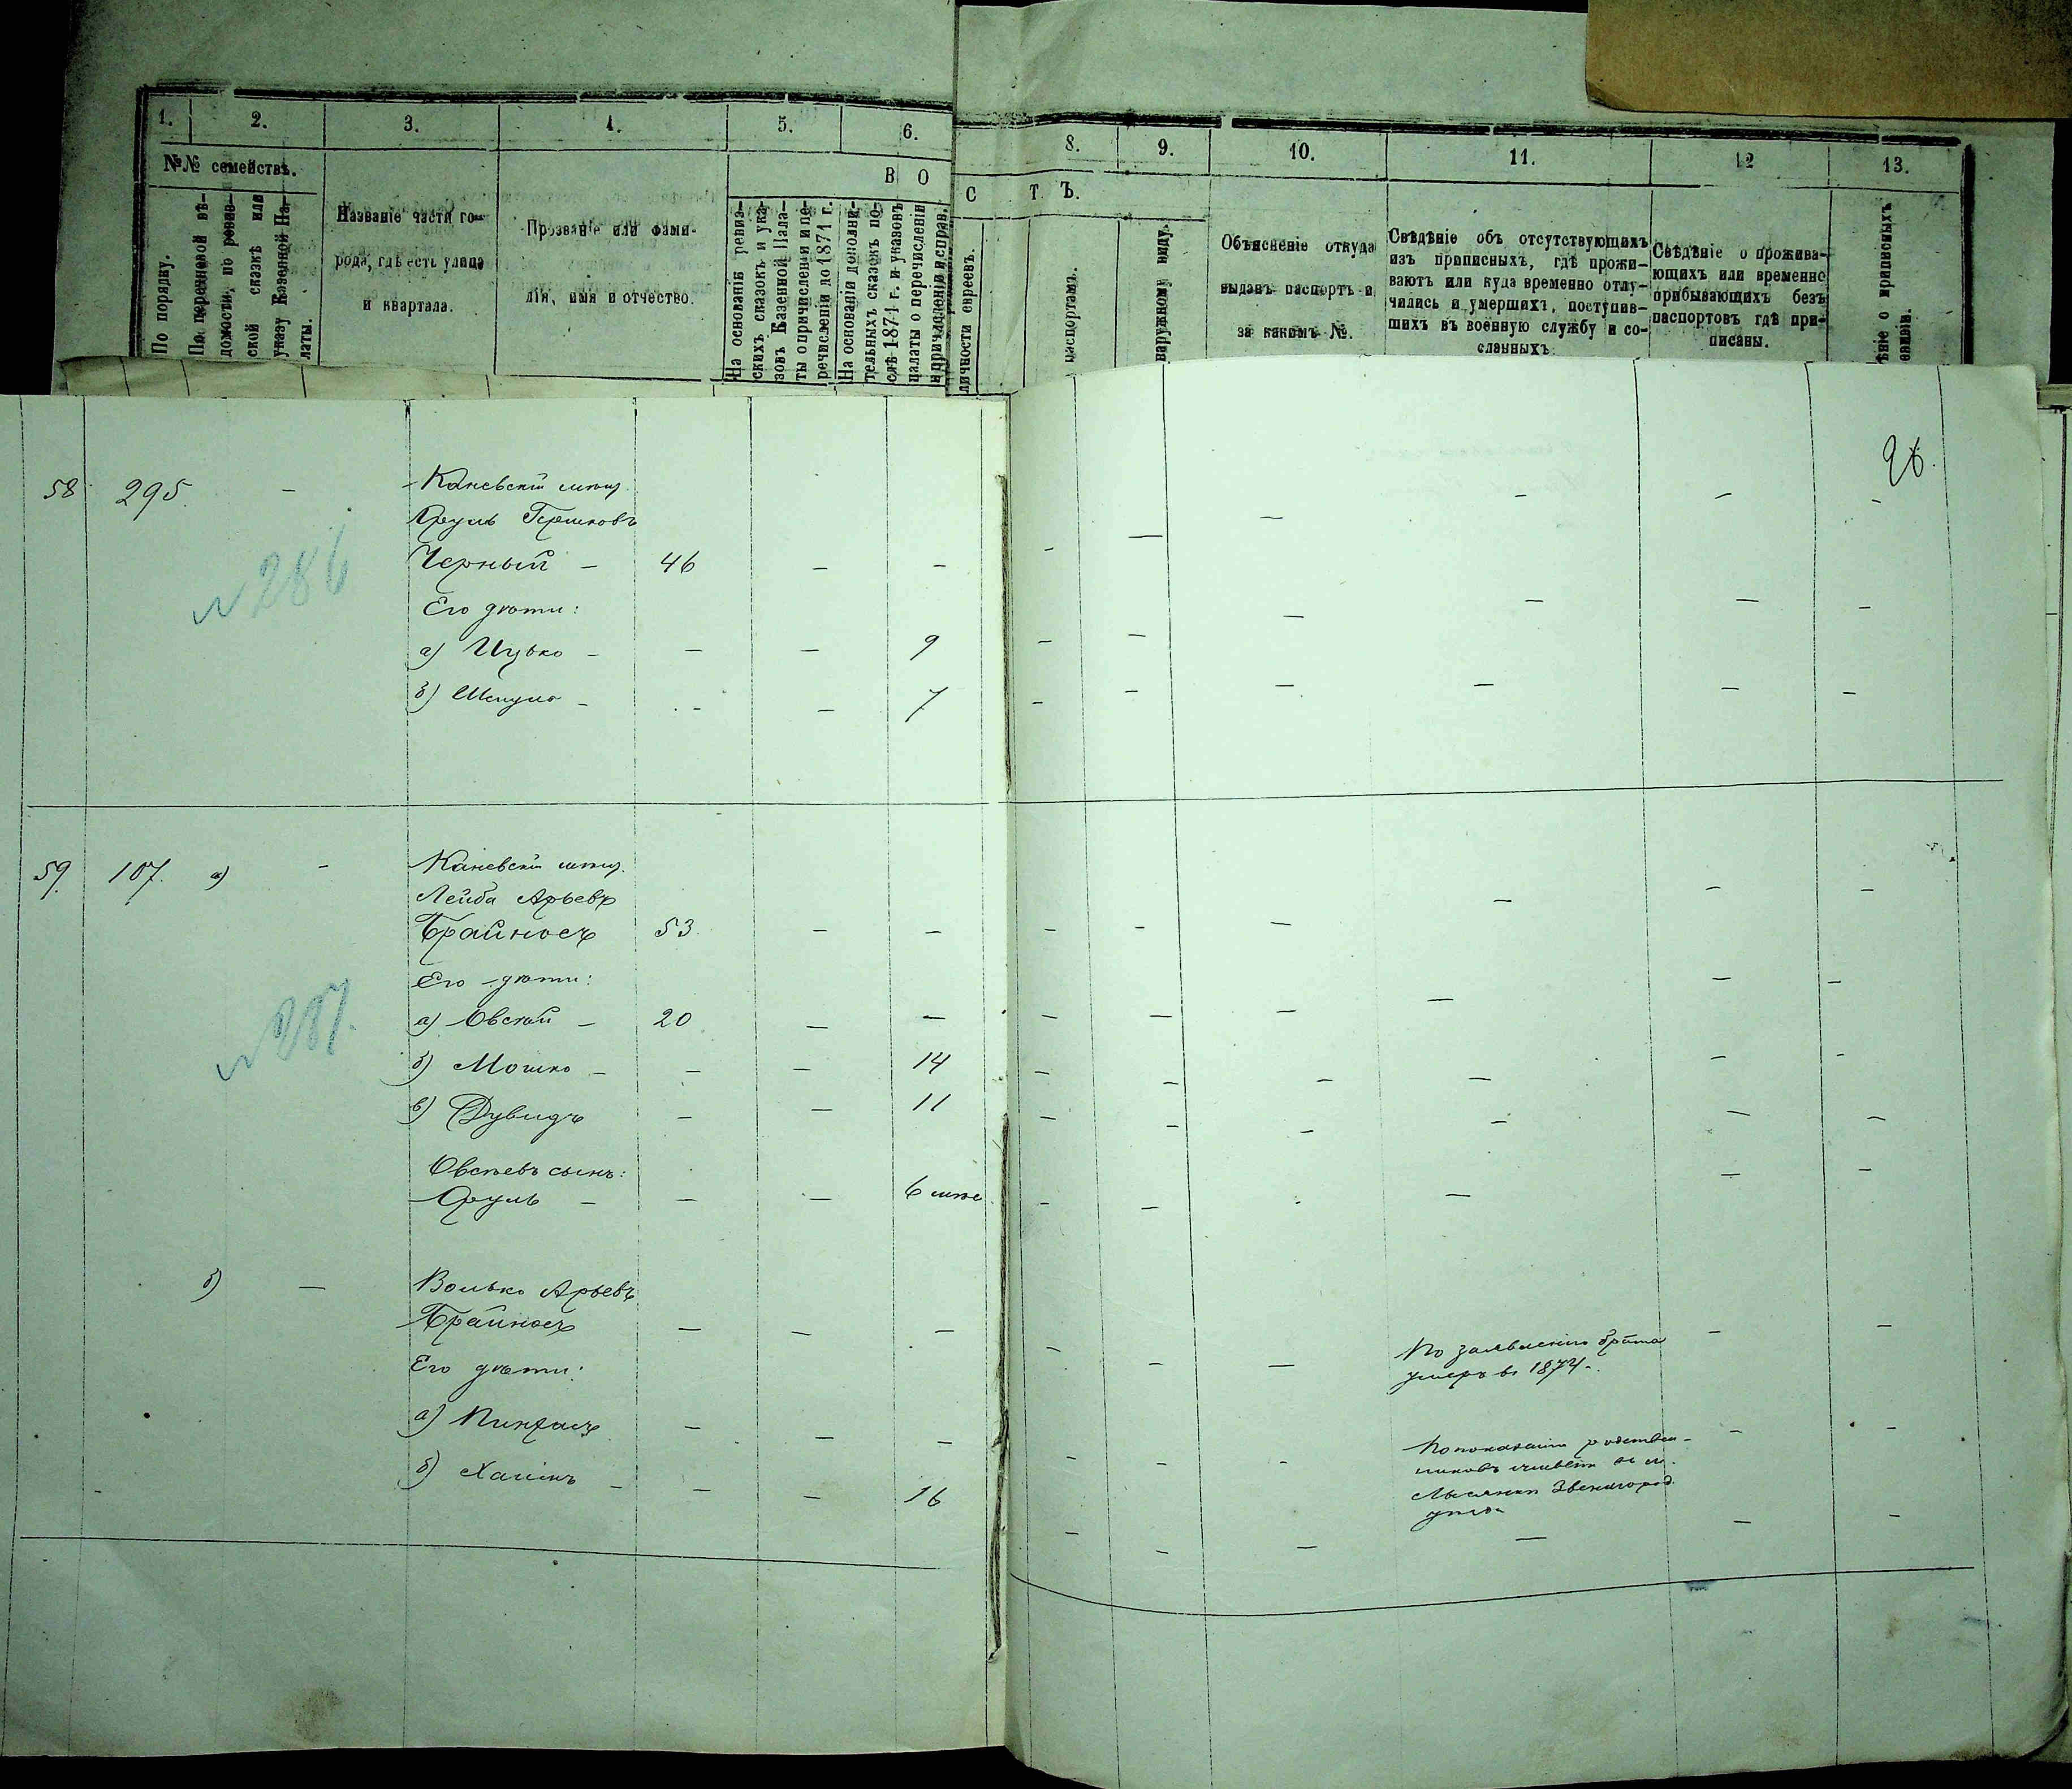 1. 2. 3. 4. 5. 6. 8. 9. 10. 11. 12 13.
№№ семействъ.
По порядку.
По перечневой вѣ-
домости, по ревиз-
ской сказкѣ или
указу Казенной Па-
латы.
Названіе части го-
рода, гдѣ есть улица
и квартала.
Прозваніе или фами-
лія, имя и отчество.
В О
С Т Ъ.
На основаніи ревиз-
скихъ сказокъ и ука-
зовъ Казенной Пала-
ты о причисленіи и пе-
речисленіи до 1871 г.
На основаніи дополни-
тельныхъ сказокъ по-
слѣ 1871 г. и указовъ
палаты о перечисленіи
и причисленіи и справ.
личности евреевъ.
паспортамъ.
наружному виду.
Объясненіе откуда
выданъ паспортъ и
за какимъ №.
Свѣдѣніе объ отсутствующихъ
изъ приписныхъ, гдѣ прожи-
ваютъ или куда временно отлу-
чились и умершихъ, поступив-
шихъ въ военную службу и со-
сланныхъ
Свѣдѣніе о прожива-
ющихъ или временно
прибывающихъ безъ
паспортовъ гдѣ при-
писаны.
ѣніе о приписныхъ
26.
58 295. - Каневскій мѣщ.
Сруль Гершковъ
Черный - 46 - -
№ 286
Его дѣти:
а) Ицько - - - 9
б) Шмуль - - - 7
59. 107. а) - Каневскій мѣщ.
Лейба Арьевъ
Брайносъ 53. - -
Его дѣти:
№ 287.
а) Овсей - 20. - -
б) Мошко - - - 14
в) Дувидъ - - 11
Овсѣевъ сынъ:
Сруль - - - 6 мѣс
б) - Волько Арьевъ
Брайносъ - - -
По заявленію брата
умеръ въ 1874.
Его дѣти:
а) Пинхасъ - - -
По показанію родствен-
никовъ живетъ въ м.
Лысянки Звенигород.
уѣзда
б) Хаимъ - - - 16